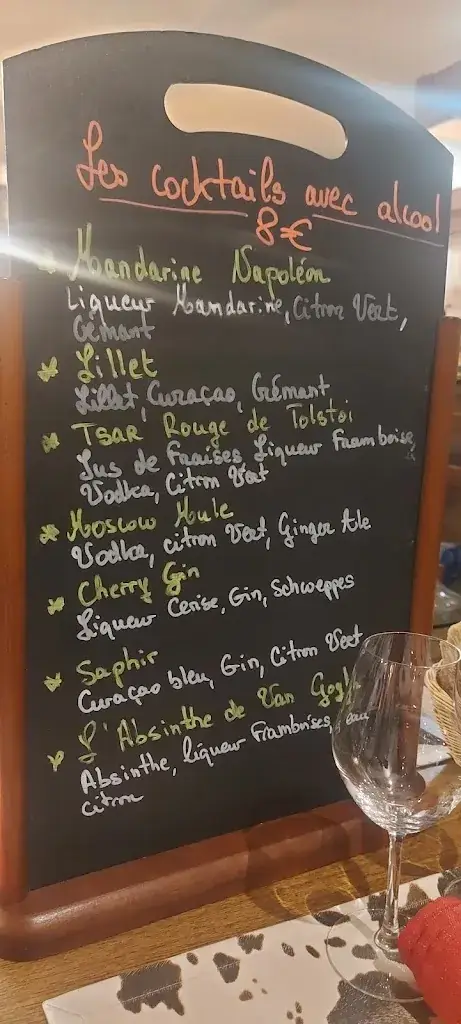 Les cocktails avec alcool
8€
* Mandarine Napoléon
Liqueur Mandarine, Citron Vert,
Crémant
* Lillet
Lillet, Curaçao, Crémant
* Tsar Rouge de Tolstoi
Jus de Fraises Liqueur Framboise,
Vodka, Citron Vert
* Moscow Mule
Vodka, citron Vert, Ginger Ale
* Cherry Gin
Liqueur Cerise, Gin, Schweppes
* Saphir
Curaçao bleu, Gin, Citron Vert
* L'Absinthe de Van Gogh
Absinthe, liqueur Framboises, eau
citron